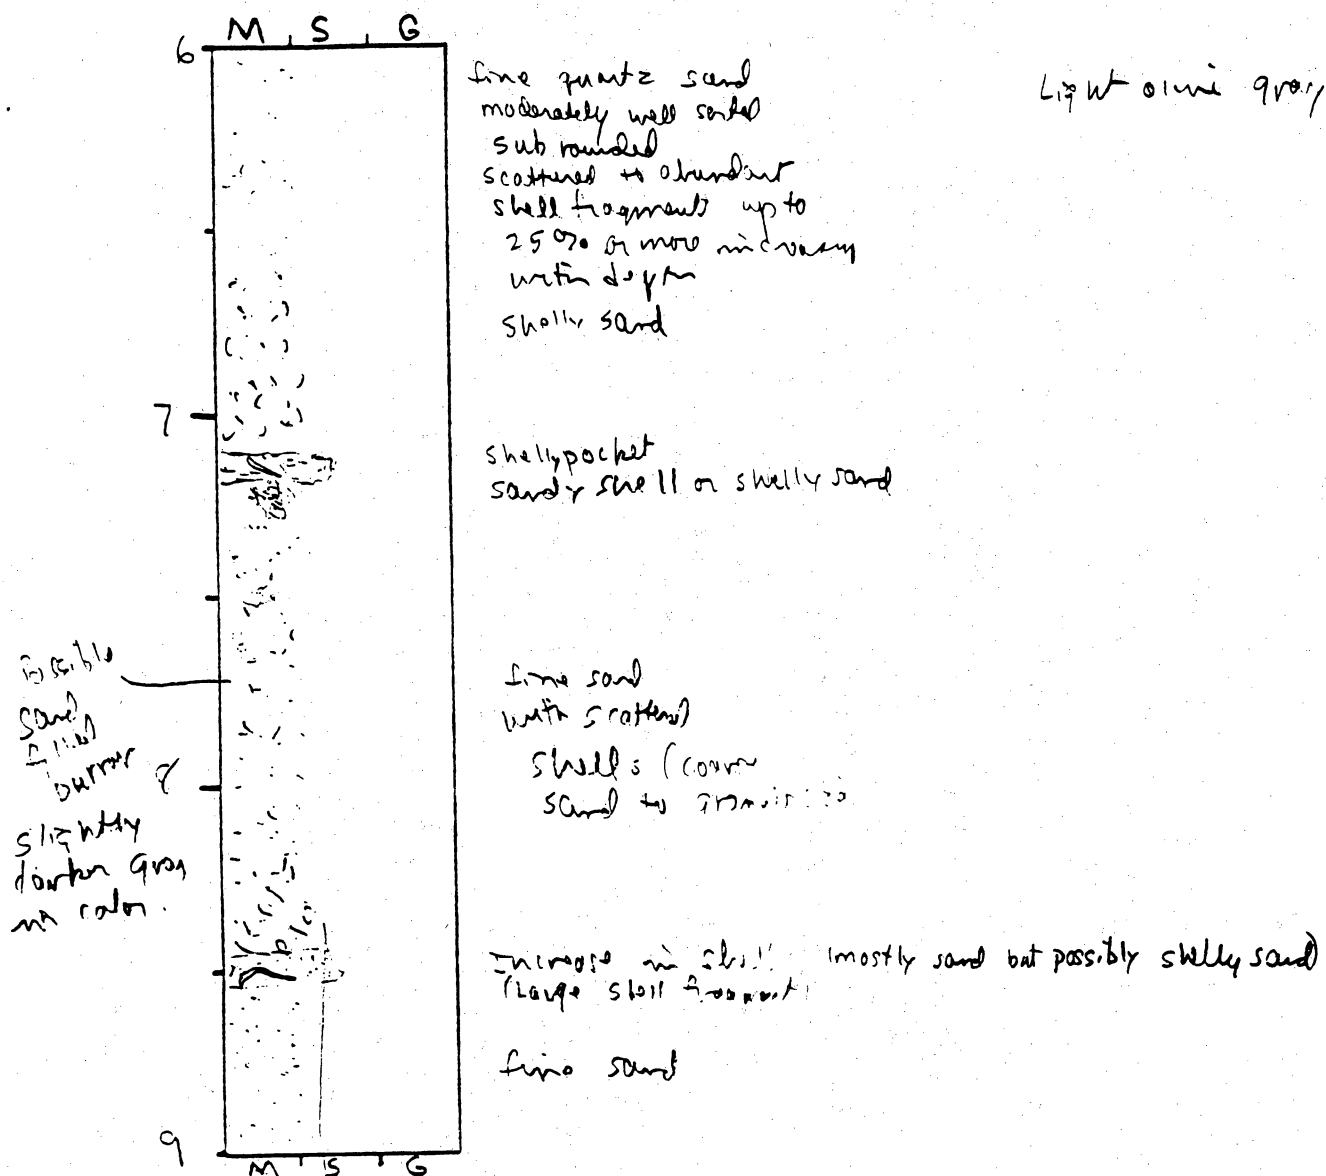 M S G
6
fine quartz sand
moderately well sorted
sub rounded
scattered to abundant
shell fragments up to
25% or more increasing
with depth
shelly sand
Light olive gray
7
shelly pocket
sandy shell or shelly sand
Possible
sand
filled
burrow
slightly
darker gray
in color.
fine sand
with scattered
shells (coarse
sand to
8
increase in shell (mostly sand but possibly shelly sand)
(large shell fragment)
fine sand
9
M S G